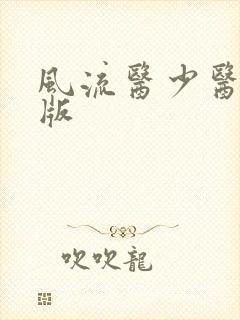 風流醫少醫
版
吹吹龍